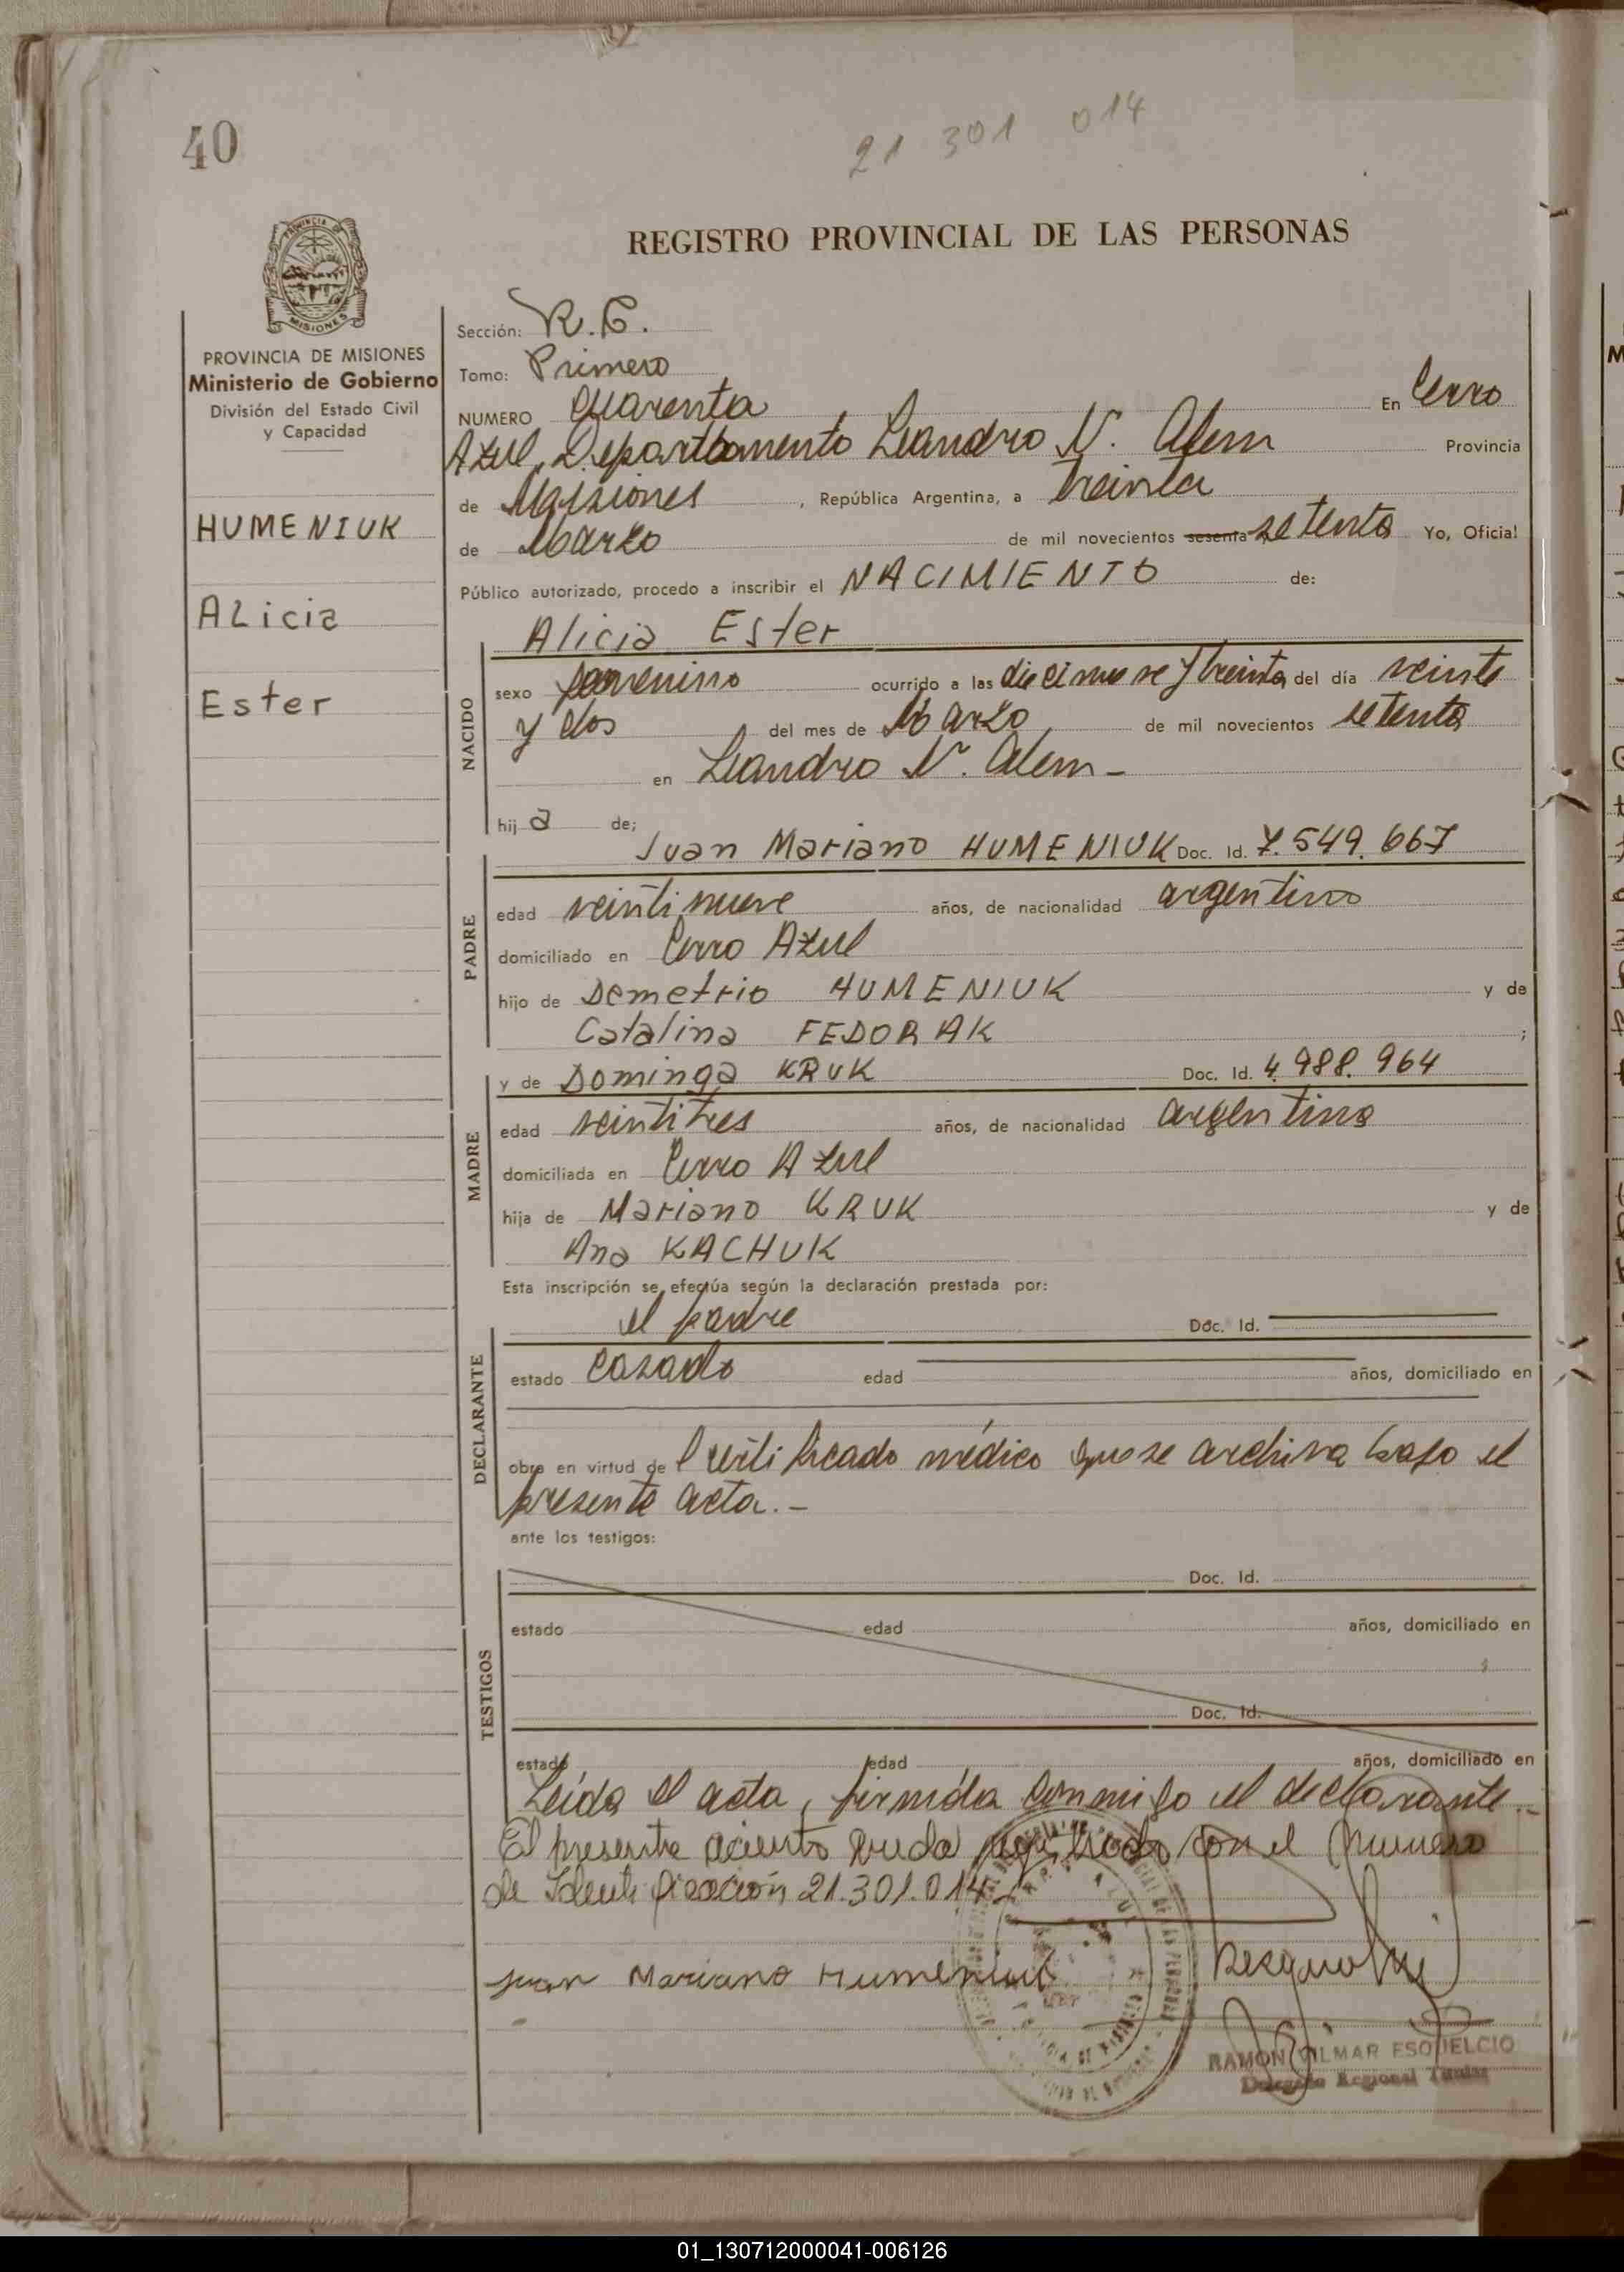 40
21 301 014
REGISTRO PROVINCIAL DE LAS PERSONAS
PROVINCIA
MISIONES
PROVINCIA DE MISIONES
Ministerio de Gobierno
División del Estado Civil
y Capacidad
HUMENIUK
ALicia
Ester
Sección: R.C.
Tomo: Primero
NUMERO Cuarenta En Cerro
Azul, Departamento Leandro N. Alem Provincia
de Misiones, República Argentina, a treinta
de Marzo de mil novecientos sesenta setenta Yo, Oficial
Público autorizado, procedo a inscribir el NACIMIENTO de:
Alicia Ester
NACIDO
sexo femenino ocurrido a las diecinueve y treinta del día veinte
y dos del mes de Marzo de mil novecientos setenta
en Leandro N. Alem -
hij a de;
Juan Mariano HUMENIUK Doc. Id. 7.549.667
PADRE
edad veintinueve años, de nacionalidad argentino
domiciliado en Cerro Azul
hijo de Demetrio HUMENIUK y de
Catalina FEDORAK ;
y de Dominga KRUK Doc. Id. 4.988.964
MADRE
edad veintitres años, de nacionalidad argentina
domiciliada en Cerro Azul
hija de Mariano KRUK y de
Ana KACHUK
Esta inscripción se efectúa según la declaración prestada por:
el padre Doc. Id.
DECLARANTE
estado casado edad años, domiciliado en
obra en virtud de Certificado médico que se archiva bajo el
presente acta.-
ante los testigos:
Doc. Id.
TESTIGOS
estado edad años, domiciliado en
Doc. Id.
estado edad años, domiciliado en
Leída el acta, firmóla conmigo el declarante.-
El presente aciento queda registrado con el numero
de Identificación 21.301.014.-
Juan Mariano Humeniuk
RAMON GILMAR ESQUIELCIO
Delegado Regional Titular
01_130712000041-006126